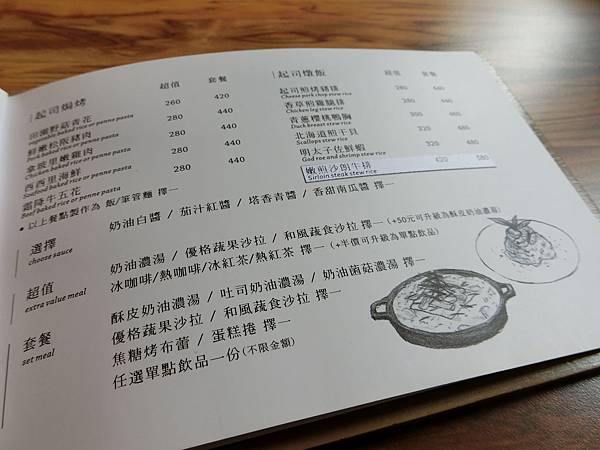 起司焗烤 超值 套餐
田園野菇青花 260 420
vegetable baked rice or penne pasta
鮮嫩松阪豬肉 280 440
Pork baked rice or penne pasta
拿坡里嫩雞肉 280 440
Chicken baked rice or penne pasta
西西里海鮮 280 440
Seafood baked rice or penne pasta
霜降牛五花 280 440
Beef baked rice or penne pasta
• 以上餐點製作為 飯/筆管麵 擇一
起司燉飯 超值 套餐
起司煎烤豬排 280 440
Cheese pork chop stew rice
香草煎雞腿排 280 440
Chicken leg stew rice
青蔥櫻桃鴨胸 280 440
Duck breast stew rice
北海道煎干貝 320 480
Scallops stew rice
明太子佐鮮蝦 320 480
Cod roe and shrimp stew rice
嫩煎沙朗牛排 420 580
Sirloin steak stew rice
選擇 奶油白醬 / 茄汁紅醬 / 塔香青醬 / 香甜南瓜醬 擇一
choose sauce
超值 奶油濃湯 / 優格蔬果沙拉 / 和風蔬食沙拉 擇一 (+50元可升級為酥皮奶油濃湯)
extra value meal
冰咖啡/熱咖啡/冰紅茶/熱紅茶 擇一 (+半價可升級為單點飲品)
套餐 酥皮奶油濃湯 / 吐司奶油濃湯 / 奶油菌菇濃湯 擇一
set meal
優格蔬果沙拉 / 和風蔬食沙拉 擇一
焦糖烤布蕾 / 蛋糕捲 擇一
任選單點飲品一份(不限金額)